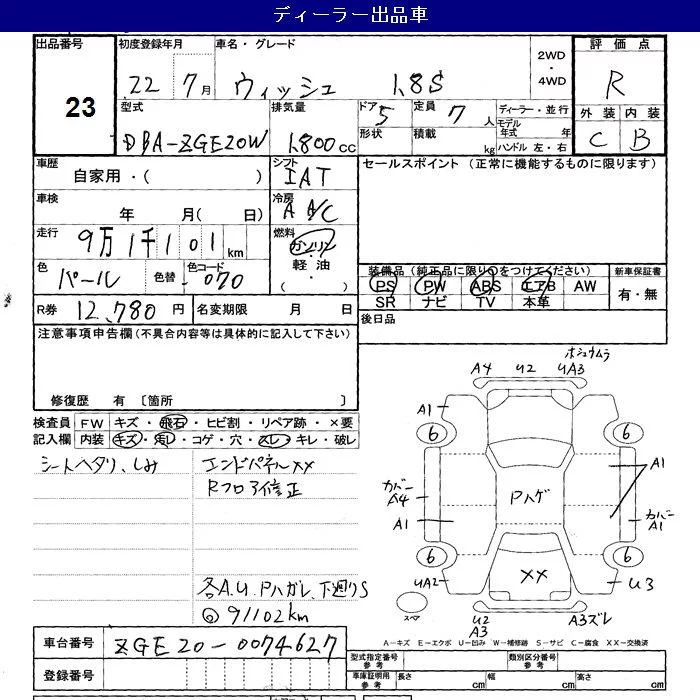 ディーラー出品車
出品番号 初度登録年月 車名・グレード 2WD・4WD 評価点
23 22 7月 ウィッシュ 1.8S R
型式 排気量 ドア 5 定員 7人 ディーラー・並行 外装 内装
DBA-ZGE20W 1,800cc 形状 積載 kg モデル年式 年 C B
ハンドル 左・右
車歴 シフト セールスポイント (正常に機能するものに限ります)
自家用・( ) IAT
車検 冷房
年 月( 日) A A/C
走行 燃料
9万1千101km ガソリン
軽油
・( )
色 色替 色コード 装備品 (純正品に限り○をつけてください) 新車保証書
パール 070 PS PW ABS エアB AW 有・無
SR ナビ TV 本革
R券 12,780円 名変期限 月 日 後日品
注意事項申告欄(不具合内容等は具体的に記入して下さい)
修復歴 有 〔箇所 〕
検査員 FW キズ・飛石・ヒビ割・リペア跡・×要
記入欄 内装 キズ・汚レ・コゲ・穴・スレ・キレ・破レ
シートヘタリ、しみ エンドパネルXX
Rフロア修正
各A.U Pハガレ、下廻りS
◎91102km
ホシュウムラ
A4 U2 UA3
A1
6 6
カバーA4 Pハゲ A1
A1 カバーA1
6 6
UA2 XX U3
スペア U2 A3 A3ズレ
A-キズ E-エクボ U-凹み W-補修跡 S-サビ C-腐食 XX-交換済
車台番号 ZGE20-0074627
登録番号
型式指定番号 参考 類別区分番号 参考
車庫証明用 参考 長さ cm 幅 cm 高さ cm